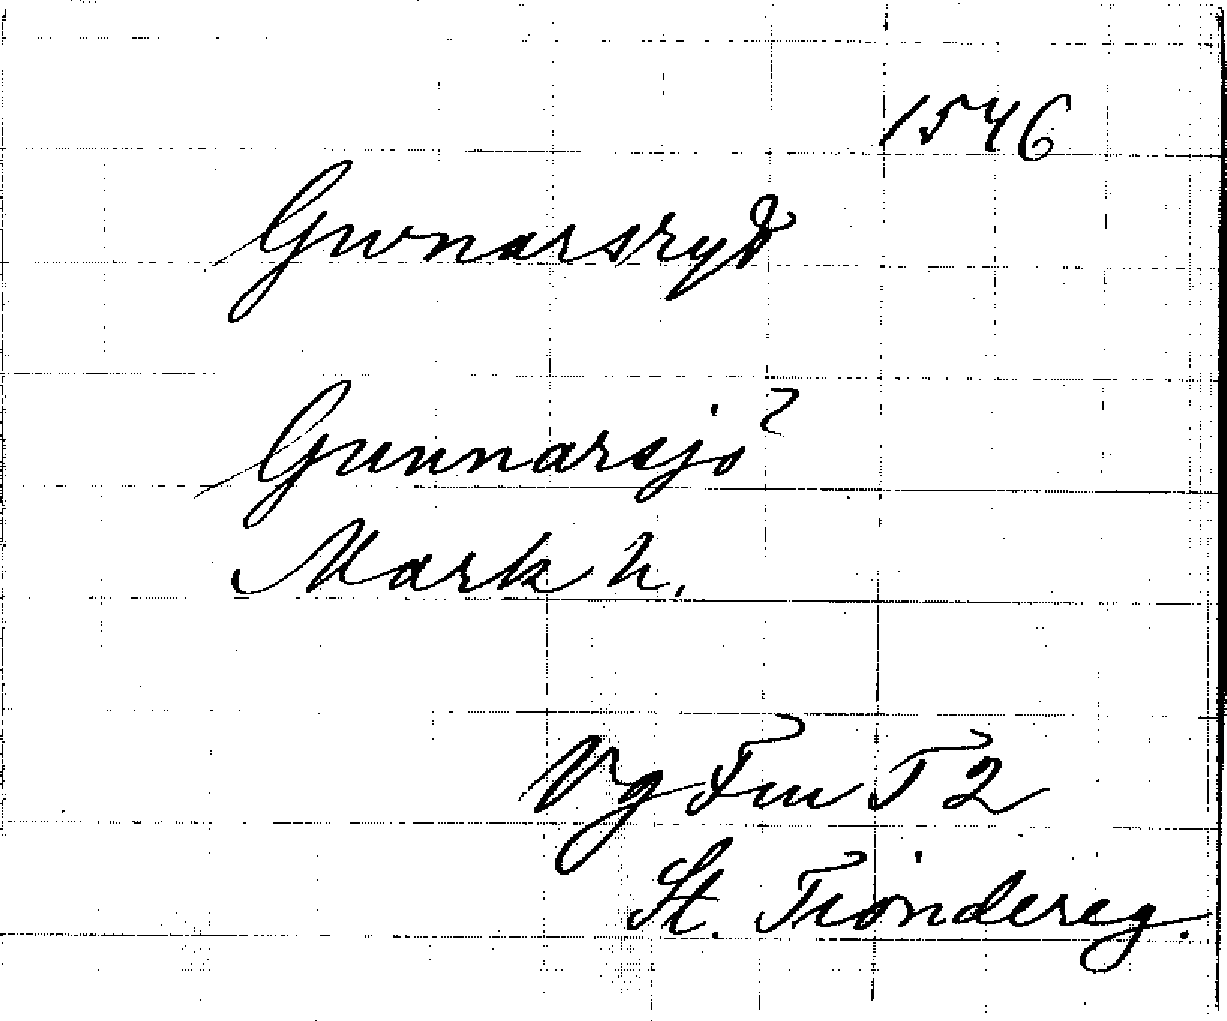 1546
Gwnarsryd
Gunnarsjö?
Mark h.
Vg Fm T 2
St. Tiöndereg.